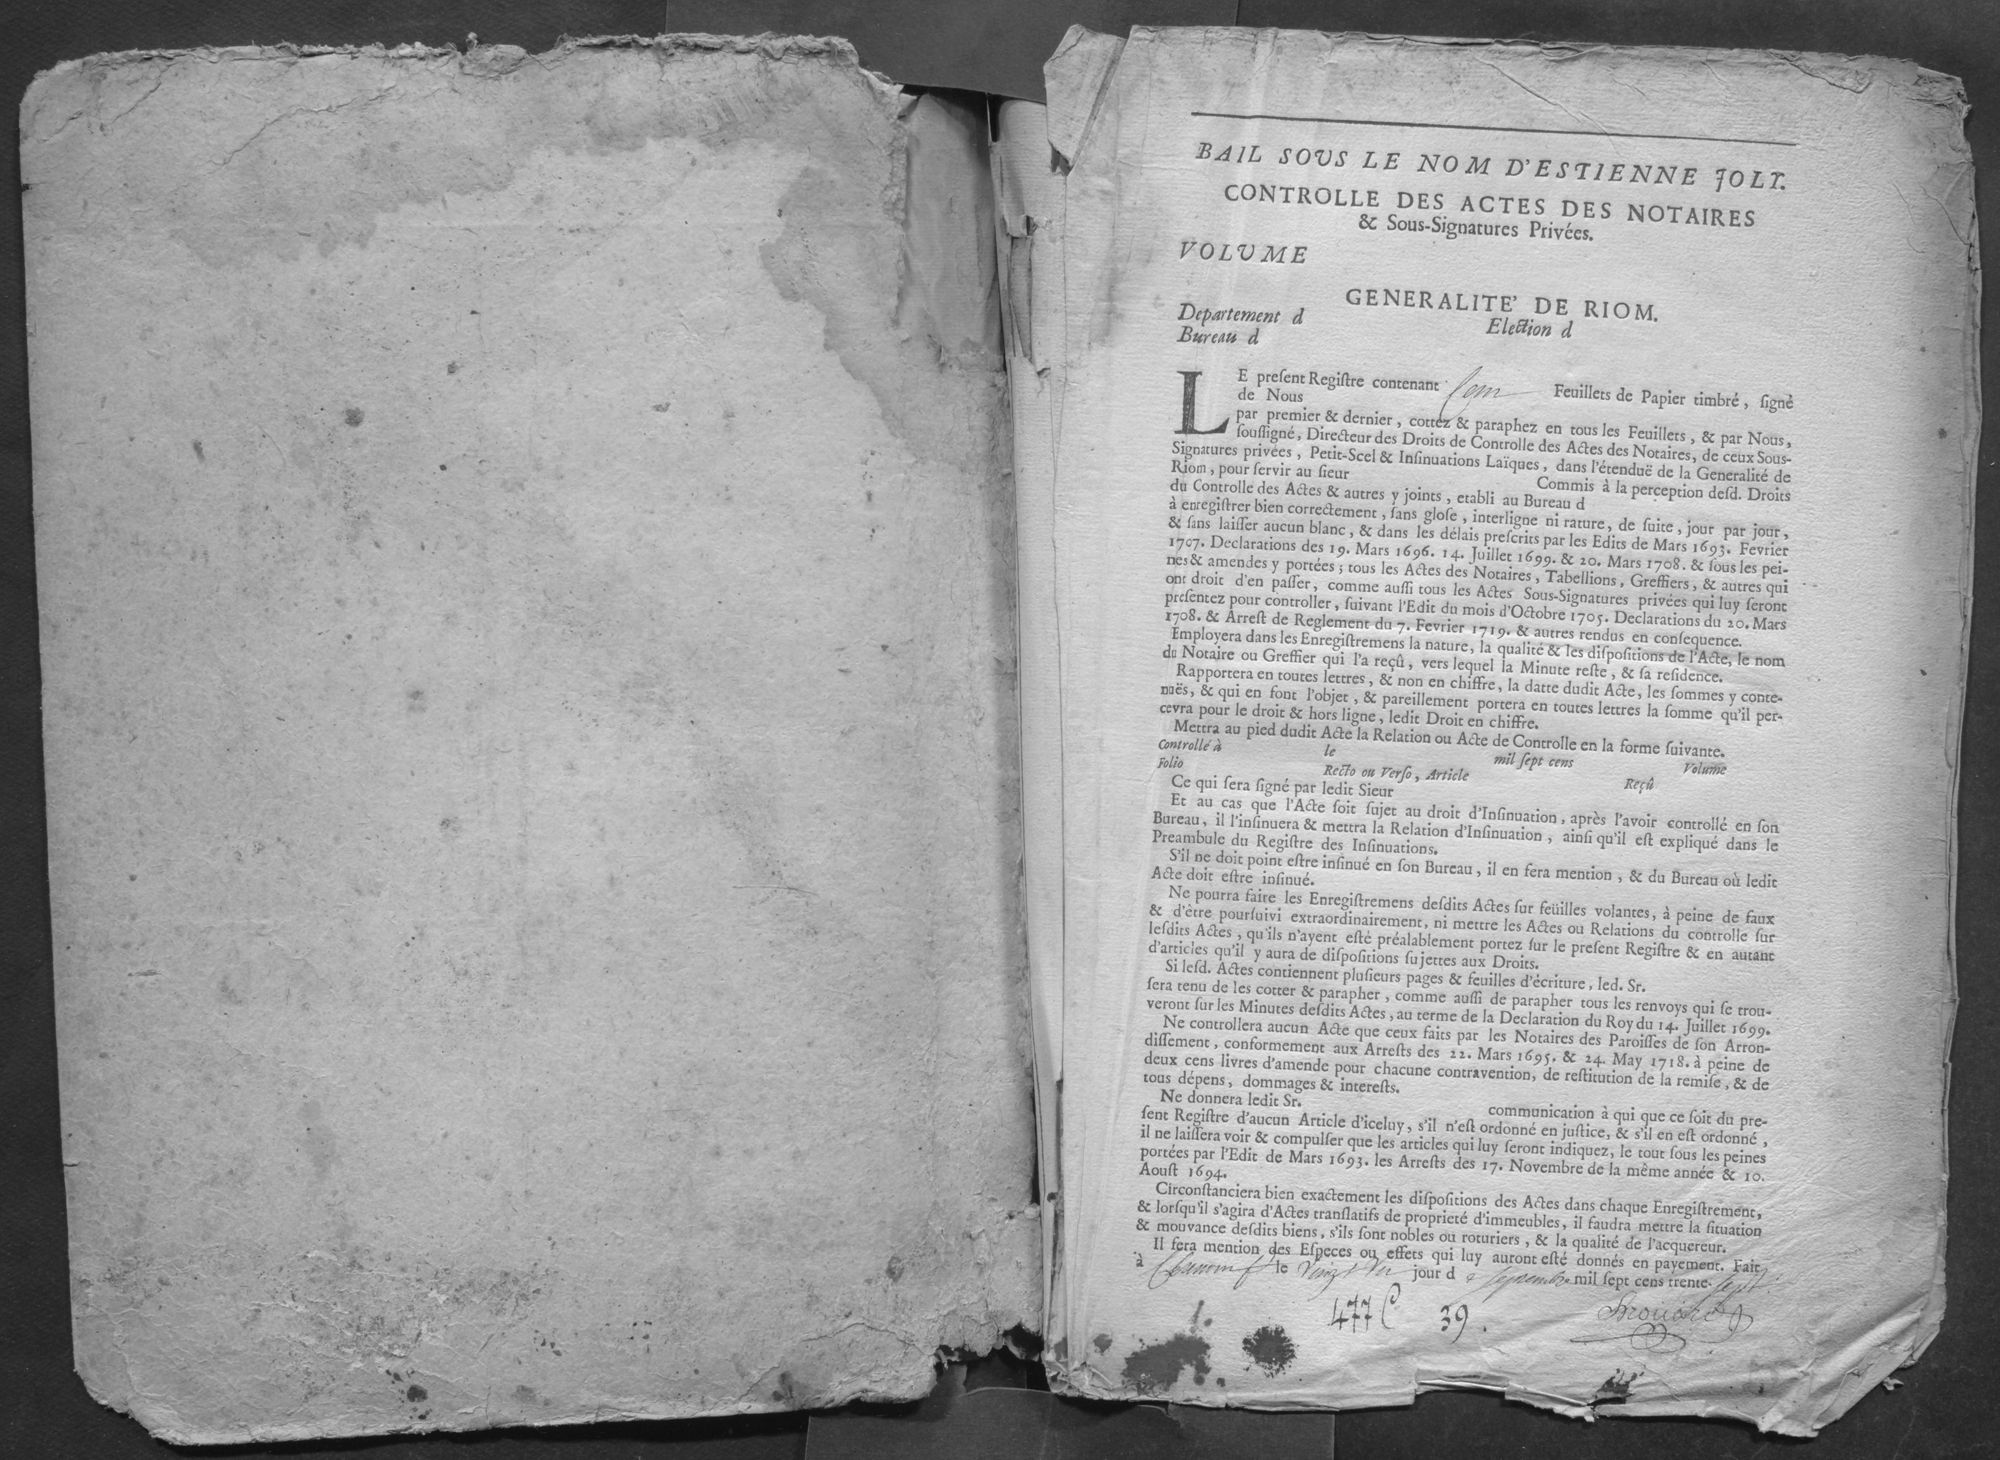 BAIL SOUS LE NOM D'ESTIENNE JOLY.
CONTROLLE DES ACTES DES NOTAIRES
& Sous-Signatures Privées.
VOLUME
GENERALITE' DE RIOM.
Departement d Election d
Bureau d
LE preſent Regiſtre contenant Cent Feuillets de Papier timbré, ſigné
de Nous
par premier & dernier, cottez & paraphez en tous les Feuillets, & par Nous,
ſouſſigné, Directeur des Droits de Controlle des Actes des Notaires, de ceux Sous-
Signatures privées, Petit-Scel & Inſinuations Laïques, dans l'étenduë de la Generalité de
Riom, pour ſervir au ſieur Commis à la perception deſd. Droits
du Controlle des Actes & autres y joints, etabli au Bureau d
à enregiſtrer bien correctement, ſans gloſe, interligne ni rature, de ſuite, jour par jour,
& ſans laiſſer aucun blanc, & dans les délais preſcrits par les Edits de Mars 1693. Fevrier
1707. Declarations des 19. Mars 1696. 14. Juillet 1699. & 20. Mars 1708. & ſous les pei-
nes & amendes y portées; tous les Actes des Notaires, Tabellions, Greffiers, & autres qui
ont droit d'en paſſer, comme auſſi tous les Actes Sous-Signatures privées qui luy ſeront
preſentez pour controller, ſuivant l'Edit du mois d'Octobre 1705. Declarations du 20. Mars
1708. & Arreſt de Reglement du 7. Fevrier 1719. & autres rendus en conſequence.
Employera dans les Enregiſtremens la nature, la qualité & les diſpoſitions de l'Acte, le nom
du Notaire ou Greffier qui l'a reçû, vers lequel la Minute reſte, & ſa reſidence.
Rapportera en toutes lettres, & non en chiffre, la datte dudit Acte, les ſommes y conte-
nuës, & qui en font l'objet, & pareillement portera en toutes lettres la ſomme qu'il per-
cevra pour le droit & hors ligne, ledit Droit en chiffre.
Mettra au pied dudit Acte la Relation ou Acte de Controlle en la forme ſuivante.
Controllé à le mil ſept cens Volume
Folio Recto ou Verſo, Article Reçû
Ce qui ſera ſigné par ledit Sieur
Et au cas que l'Acte ſoit ſujet au droit d'Inſinuation, après l'avoir controllé en ſon
Bureau, il l'inſinuera & mettra la Relation d'Inſinuation, ainſi qu'il eſt expliqué dans le
Preambule du Regiſtre des Inſinuations.
S'il ne doit point eſtre inſinué en ſon Bureau, il en fera mention, & du Bureau où ledit
Acte doit eſtre inſinué.
Ne pourra faire les Enregiſtremens deſdits Actes ſur feüilles volantes, à peine de faux
& d'être pourſuivi extraordinairement, ni mettre les Actes ou Relations du controlle ſur
leſdits Actes, qu'ils n'ayent eſté préalablement portez ſur le preſent Regiſtre & en autant
d'articles qu'il y aura de diſpoſitions ſujettes aux Droits.
Si leſd. Actes contiennent pluſieurs pages & feuilles d'écriture, led. Sr.
ſera tenu de les cotter & parapher, comme auſſi de parapher tous les renvoys qui ſe trou-
veront ſur les Minutes deſdits Actes, au terme de la Declaration du Roy du 14. Juillet 1699.
Ne controllera aucun Acte que ceux faits par les Notaires des Paroiſſes de ſon Arron-
diſſement, conformement aux Arreſts des 22. Mars 1695. & 24. May 1718. à peine de
deux cens livres d'amende pour chacune contravention, de reſtitution de la remiſe, & de
tous dépens, dommages & intereſts.
Ne donnera ledit Sr. communication à qui que ce ſoit du pre-
ſent Regiſtre d'aucun Article d'iceluy, s'il n'eſt ordonné en juſtice, & s'il en eſt ordonné,
il ne laiſſera voir & compulſer que les articles qui luy ſeront indiquez, le tout ſous les peines
portées par l'Edit de Mars 1693. les Arreſts des 17. Novembre de la même année & 10.
Aouſt 1694.
Circonſtanciera bien exactement les diſpoſitions des Actes dans chaque Enregiſtrement,
& lorſqu'il s'agira d'Actes tranſlatifs de proprieté d'immeubles, il faudra mettre la ſituation
& mouvance deſdits biens, s'ils ſont nobles ou roturiers, & la qualité de l'acquereur.
Il fera mention des Eſpeces ou effets qui luy auront eſté donnés en payement. Fait
à le jour d e Septembre mil ſept cens trente ſept
477 C 39.